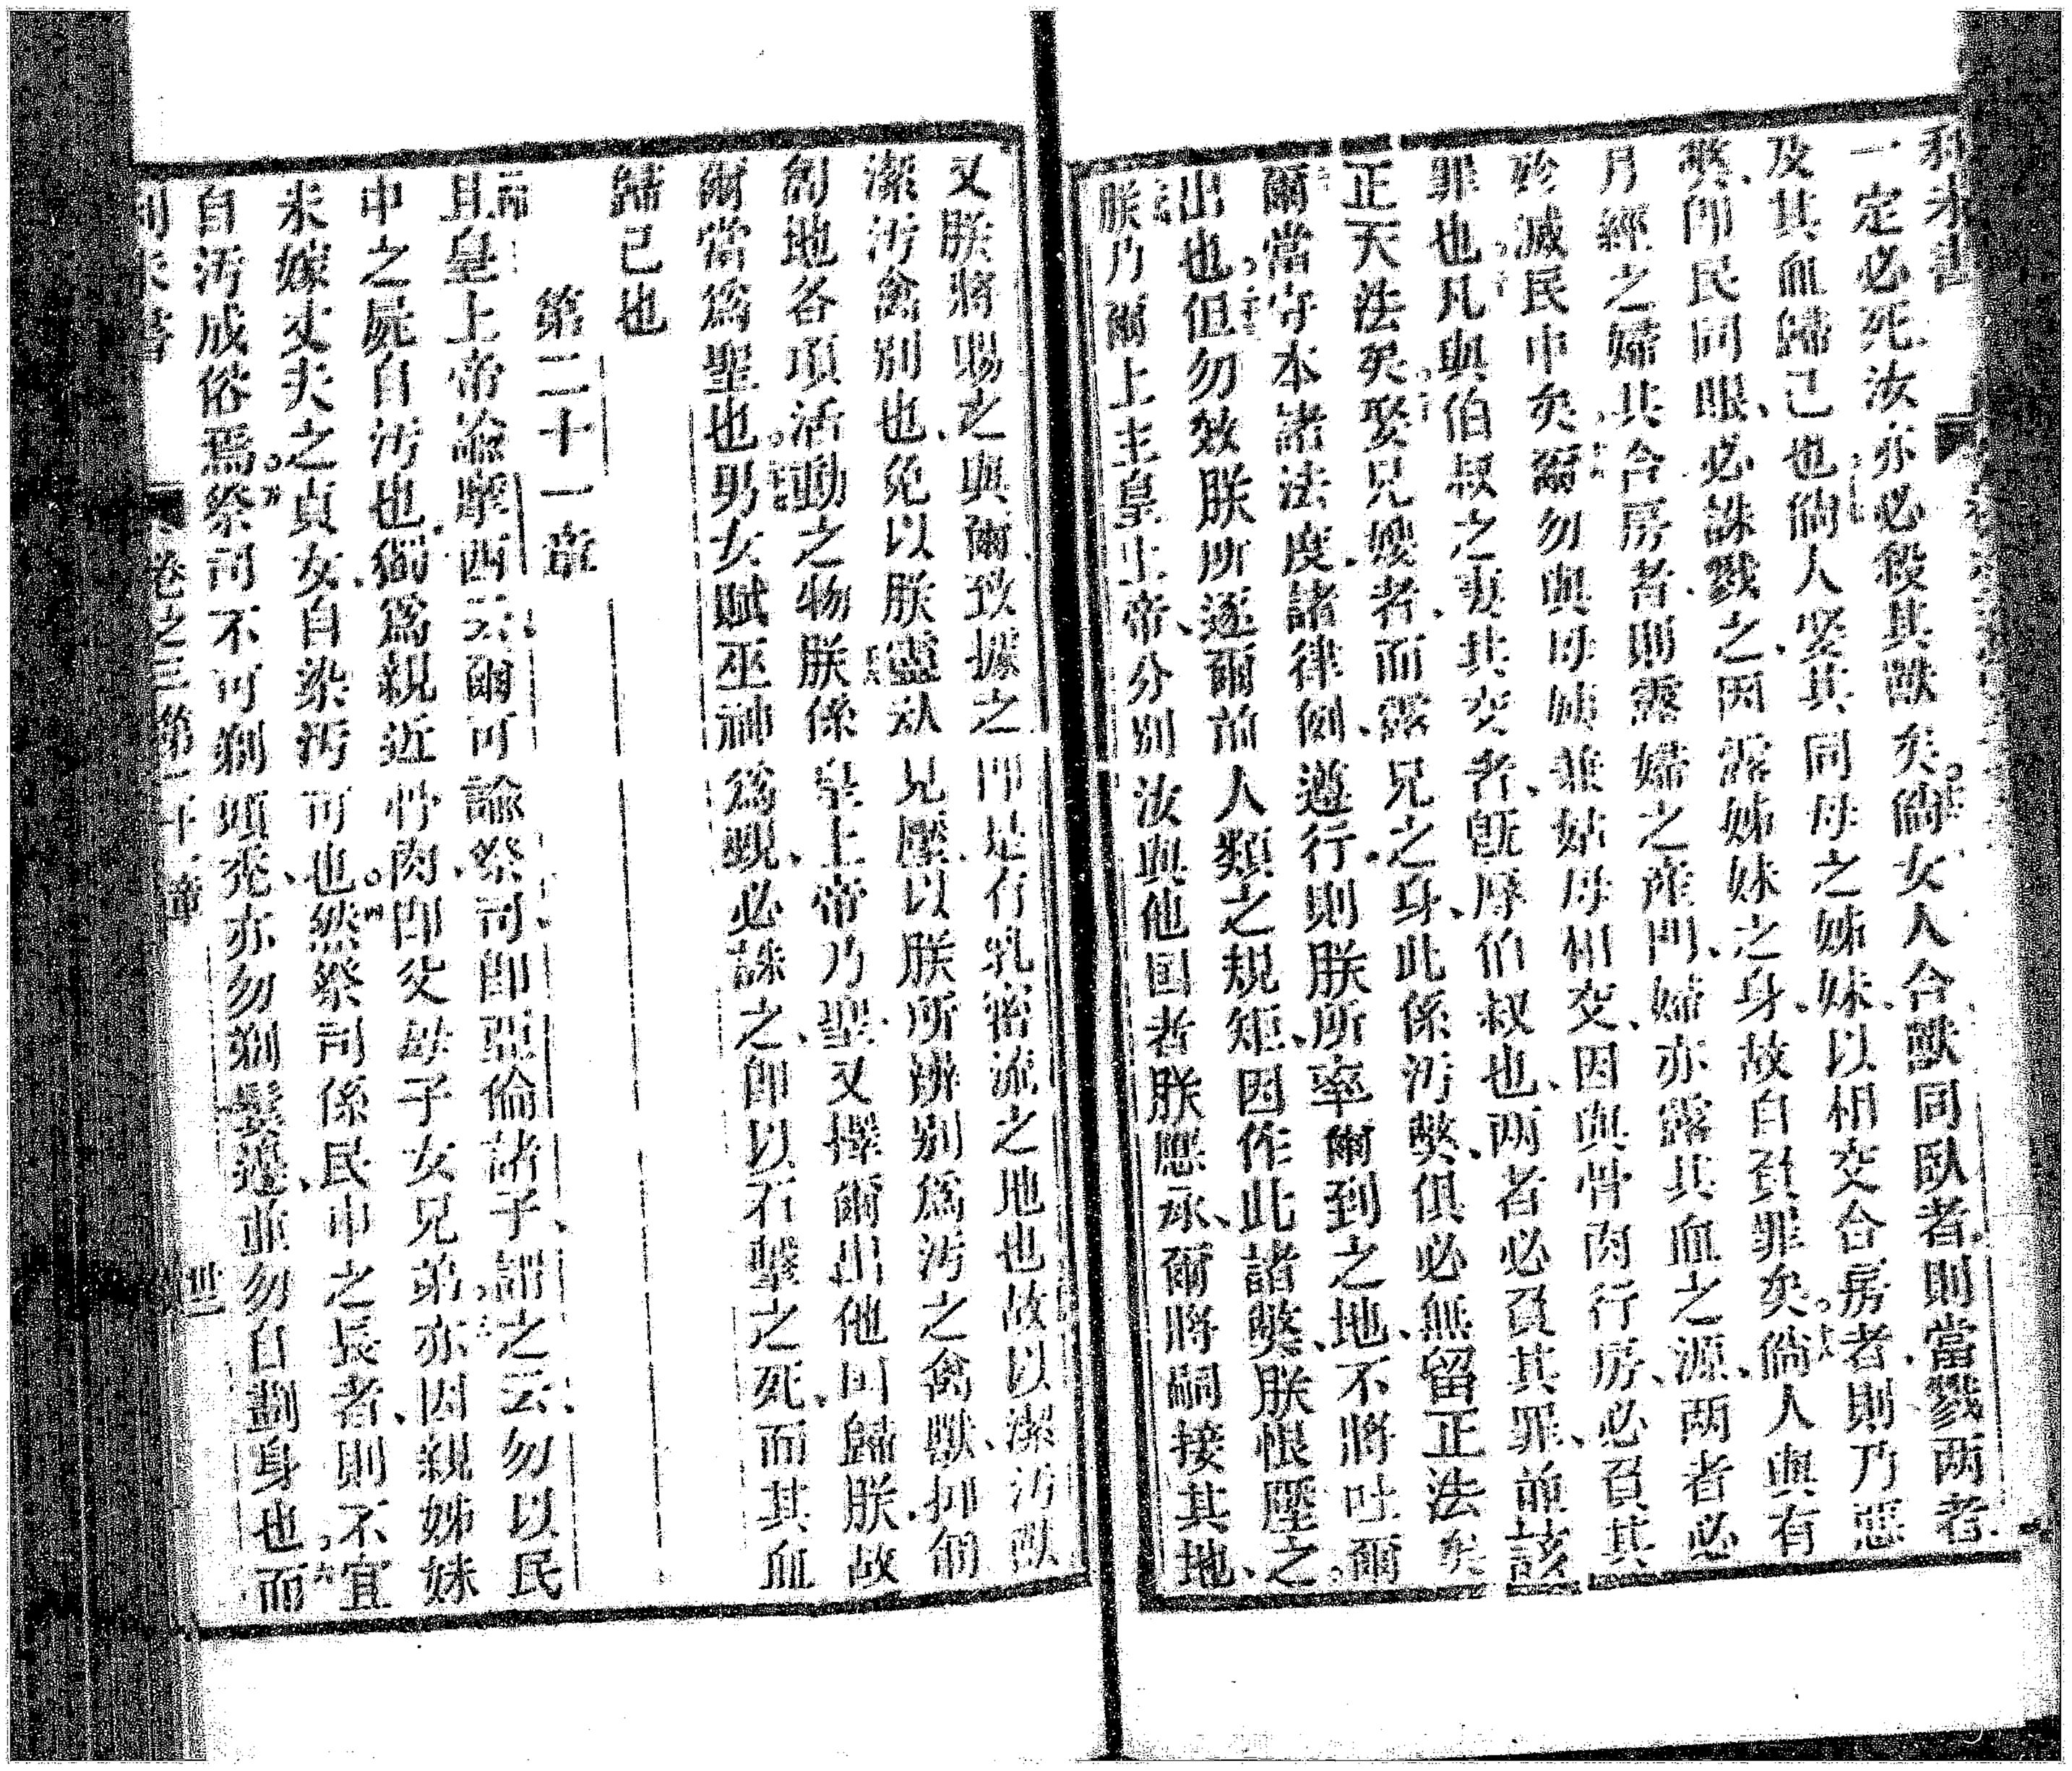 一定必死汝亦必殺其獸矣倘女人合獸同臥者則當戮两者
及其血歸己也倘人娶其同母之姊妹以相交合房者則乃惡
獘卽民同眼必誅戮之因露姊妹之身故自負罪矣倘人與有
月經之婦共合房者則露婦之產門婦亦露其血之源两者必
殄滅民中矣爾勿與母姨並姑母相交因與骨肉行房必負其
罪也凡與伯叔之妻共交者旣辱伯叔也两者必負其罪前該
正天法矣娶兄嫂者而露兄之身此係汚獘俱必無留正法矣
爾當守本諸法度諸律例遵行則朕所率爾到之地不將吐爾
出也但勿效朕所逐爾前人類之規矩因作此諸獘朕恨壓之
朕乃爾上主皇上帝分別汝與他国者朕應承爾將嗣接其地
又朕將賜之與爾致據之卽是有乳密流之地也故以潔汚獸
潔汚禽別也免以朕靈从見壓以朕所辨別爲汚之禽獸抑匍
匍地各項活動之物朕係皇上帝乃聖又擇爾出他囯歸朕故
爾當爲聖也男女賦巫神爲覡必誅之卽以石擊之死而其血
歸己也
第二十一章
且皇上帝諭摩西云爾可諭祭司卽亞倫諸子謂之云勿以民
中之屍自汚也獨爲親近骨肉卽父母子女兄弟亦因親姊妹
未嫁丈夫之貞女自染汚可也然祭司係民中之長者則不宜
自汚成俗焉祭司不可剃頭禿亦勿剃鬚邊並勿自劃身也而
卷之三第二十章 丗一